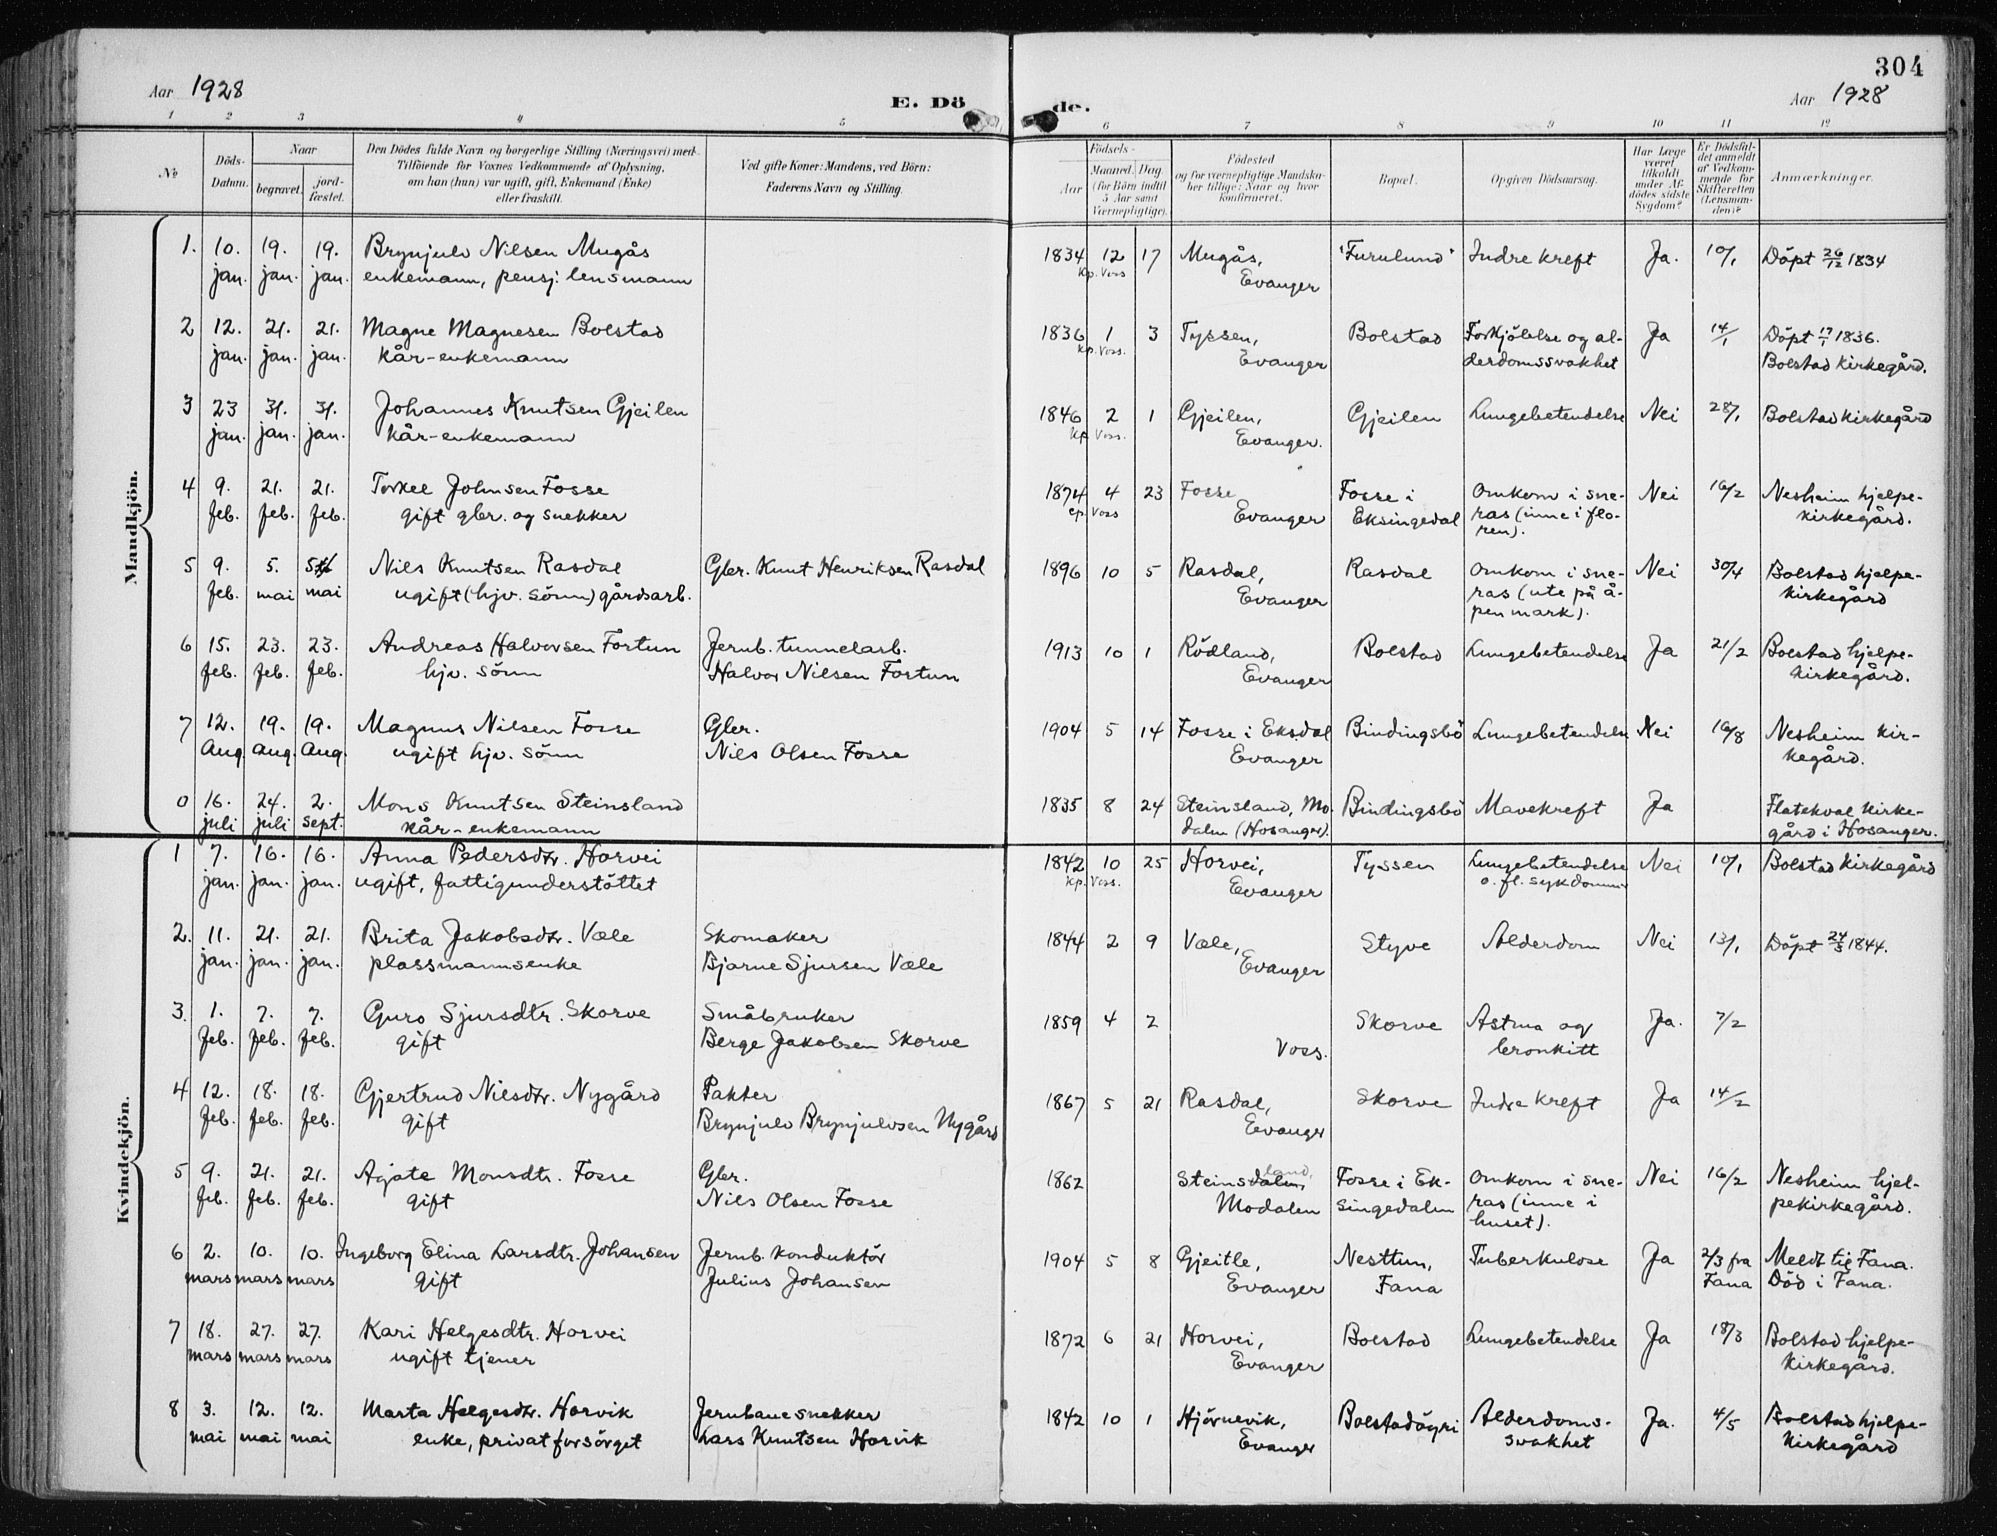 304
Aar 1928
E. Dö
de.
Aar 1928
1 2 3 4 5 6 7 8 9 10 11 12
№
Döds-
Datum.
Naar
begravet.
jord-
fæstet.
Den Dödes fulde Navn og borgerlige Stilling (Næringsvei) med
Tilföiende for Voxnes Vedkommende af Oplysning,
om han (hun) var ugift, gift, Enkemand (Enke)
eller fraskilt.
Ved gifte Koner: Mandens, ved Börn:
Faderens Navn og Stilling.
Födsels-
Aar
Maaned. Dag.
(for Börn indtil
5 Aar samt
Værnepligtige).
Födested
og for værnepligtige Mandska-
ber tillige: Naar og hvor
konfirmeret.
Bopæl.
Opgiven Dödsaarsag.
Har Læge
været
tilkaldt
under Af-
dödes sidste
Sygdom?
Er Dödsfal-
det anmeldt
af Vedkom-
mende for
Skifteretten
(Lensman-
den)?
Anmærkninger.
Mandkjön.
1. 10. 19. 19. Brynjulv Nilsen Mugås 1834 12 17 Mugås, "Furulund" Indre kreft Ja. 10/1 Döpt 26/12 1834
jan. jan. jan. enkemann, pensj. lensmann Kp. Voss Evanger
2 12. 21. 21. Magne Magnesen Bolstad 1836 1 3 Tyssen, Bolstad Forkjölelse og al- Ja 14/1 Döpt 17/1 1836.
jan. jan. jan. kår-enkemann Kp. Voss. Evanger derdomssvakhet Bolstad kirkegård.
3 23 31. 31. Johannes Knutsen Gjeilen 1846 2 1 Gjeilen, Gjeilen Lungebetendelse Nei 28/1 Bolstad kirkegård
jan. jan. jan. kår-enkemann Kp. Voss. Evanger.
4 9. 21. 21. Torkel Johnsen Fosse 1874 4 23 Fosse Fosse i Omkom i sne- Nei 16/2 Nesheim hjelpe-
feb. feb. feb. gift gbr. og snekker Voss Evanger Eksingedal ras (inne i flo- kirkegård.
ren).
5 9. 5. 5. Nils Knutsen Rasdal Gbr. Knut Henriksen Rasdal 1896 10 5 Rasdal, Rasdal Omkom i sne- Nei 30/4 Bolstad hjelpe-
feb. mai mai ugift (hjv. sönn) gårdsarb. Evanger ras (ute på å- kirkegård
pen mark).
6 15. 23. 23. Andreas Halvorsen Fortun Jernb. tunnelarb. 1913 10 1 Rödland, Bolstad Lungebetendelse Ja 21/2 Bolstad hjelpe-
feb. feb. feb. hjv. sönn Halvor Nilsen Fortun Evanger kirkegård.
7 12. 19. 19. Magnus Nilsen Fosse Gbr. 1904 5 14 Fosse i Eksdal Bindingsbö Lungebetendelse Nei 16/8 Nesheim kir-
Aug. Aug. Aug. ugift hjv. sönn Nils Olsen Fosse Evanger kegård.
0 16. 24. 2. Mons Knutsen Steinsland 1835 8 24 Steinsland, Mo- Bindingsbö Mavekreft Ja Flatekval kirke-
juli juli sept. kår-enkemann dalen (Hosanger). gård i Hosanger.
Kvindekjön.
1 7. 16. 16. Anna Pedersdtr. Horvei 1842 10 25 Horvei, Tyssen Lungebetendelse Nei 10/1 Bolstad kirkegård
jan. jan. jan. ugift, fattigunderstöttet Kp. Voss. Evanger o. fl. sykdommer
2. 11. 21. 21. Brita Jakobsdtr. Væle Skomaker 1844 2 9 Væle, Styve Alderdom Nei 13/1 Döpt 24/3 1844.
jan. jan. jan. plassmannsenke Bjarne Sjursen Væle Evanger
3. 1. 7. 7. Guro Sjursdtr. Skorve Småbruker 1859 4 2 Skorve Astma og Ja. 7/2
feb. feb. feb. gift Berge Jakobsen Skorve Voss. bronkitt
4 12. 18. 18. Gjertrud Nilsdtr. Nygård Pakter 1867 5 21 Rasdal, Skorve Indre kreft Ja 14/2
feb. feb. feb. gift Brynjulv Brynjulvsen Nygård Evanger
5 9. 21. 21. Agate Monsdtr. Fosse Gbr. 1862 Steinsdalen, land, Fosse i Ek- Omkom i sne- Nei 16/2 Nesheim hjel-
feb. feb. feb. gift Nils Olsen Fosse Modalen singedalen ras (inne i pekirkegård.
huset).
6 2. 10. 10. Ingeborg Elina Larsdtr. Johansen Jernb. konduktör 1904 5 8 Gjeitle, Nesttun, Tuberkulose Ja 2/3 fra Meldt til Fana.
mars mars mars gift Julius Johansen Evanger Fana Fana Död i Fana.
7 18. 27. 27. Kari Helgesdtr. Horvei 1872 6 21 Horvei, Bolstad Lungebetendelse Ja 18/3 Bolstad hjelpe-
mars mars mars ugift tjener Evanger kirkegård.
8 3. 12. 12. Marta Helgesdtr. Horvik Jernbanesnekker 1842 10 1 Hjörnevik, Bolstadögri Alderdoms- Ja. 4/5 Bolstad hjelpe-
mai mai mai enke, privat forsörget Lars Knutsen Horvik Evanger svakhet kirkegård